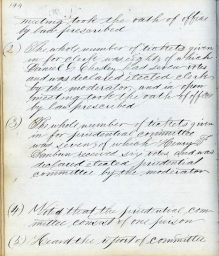 144
meeting took the oath of office
by law prescribed
(2) The whole number of tickets given
in for clerk was eight of which
Daniel C. had seven votes
and was declared elected clerk
by the moderator, and in open
meeting took the oath of office
by law prescribed
(3) The whole number of tickets given
in for prudential committee
was seven of which Henry
received six votes and was
declared elected prudential
committee by the moderator
(4) Voted that the prudential com
mittee consist of one person
(5) Heard the report of committee